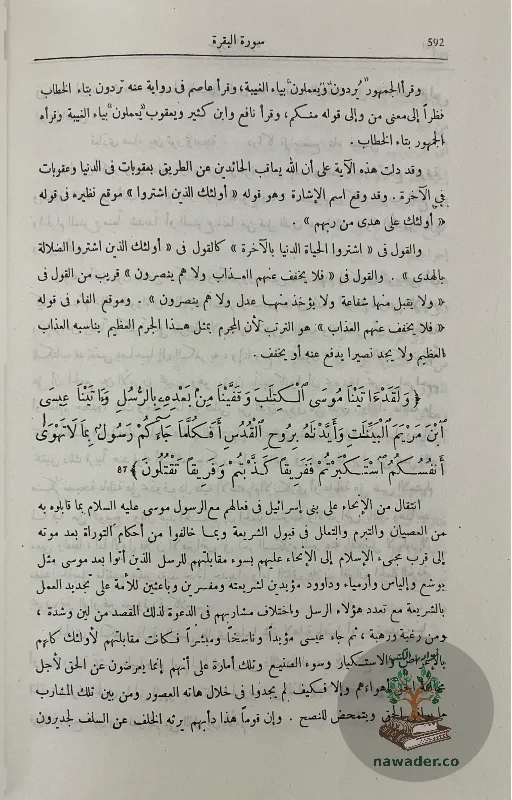 592
سورة البقرة
وقرأ الجمهور «يُردون» و«يعملون» بياء الغيبة، وقرأ عاصم فى رواية عنه تردون بتاء الخطاب
نظراً إلى معنى من وإلى قوله منكم، وقرأ نافع وابن كثير ويعقوب «يعملون» بياء الغيبة وقرأه
الجمهور بتاء الخطاب.
وقد دلت هذه الآية على أن الله يعاقب الحائدين عن الطريق بعقوبات فى الدنيا وعقوبات
فى الآخرة. وقد وقع اسم الإشارة وهو قوله «أولئك الذين اشتروا» موقع نظيره فى قوله
«أولئك على هدى من ربهم».
والقول فى «اشتروا الحياة الدنيا بالآخرة» كالقول فى «أولئك الذين اشتروا الضلالة
بالهدى». والقول فى «فلا يخفف عنهم العذاب ولا هم ينصرون» قريب من القول فى
«ولا يقبل منها شفاعة ولا يؤخذ منها عدل ولا هم ينصرون». وموقع الفاء فى قوله
«فلا يخفف عنهم العذاب» هو الترتب لأن المجرم بمثل هذا الجرم العظيم يناسبه العذاب
العظيم ولا يجد نصيرا يدفع عنه أو يخفف.
﴿وَلَقَدْ ءَاتَيْنَا مُوسَى ٱلْكِتَٰبَ وَقَفَّيْنَا مِنۢ بَعْدِهِۦ بِالرُّسُلِ وَءَاتَيْنَا عِيسَى
ٱبْنَ مَرْيَمَ ٱلْبَيِّنَٰتِ وَأَيَّدْنَٰهُ بِرُوحِ ٱلْقُدُسِ أَفَكُلَّمَا جَآءَكُمْ رَسُولٌ بِمَا لَا تَهْوَىٰٓ
أَنفُسُكُمُ ٱسْتَكْبَرْتُمْ فَفَرِيقًا كَذَّبْتُمْ وَفَرِيقًا تَقْتُلُونَ﴾ 87
انتقال من الإنحاء على بنى إسرائيل فى فعالهم مع الرسول موسى عليه السلام بما قابلوه به
من العصيان والتبرم والتعلل فى قبول الشريعة وبما خالفوا من أحكام التوراة بعد موته
إلى قرب مجىء الإسلام إلى الإنحاء عليهم بسوء مقابلتهم للرسل الذين أتوا بعد موسى مثل
يوشع وإلياس وأرمياء وداوود مؤيدين لشريعته ومفسرين وباعثين للأمة على تجديد العمل
بالشريعة مع تعدد هؤلاء الرسل واختلاف مشاربهم فى الدعوة لذلك المقصد من لين وشدة،
ومن رغبة ورهبة، ثم جاء عيسى مؤيداً وناسخاً ومبشراً فكانت مقابلتهم لأولئك كلهم
بالإعراض والاستكبار وسوء الصنيع وتلك أمارة على أنهم إنما يعرضون عن الحق لأجل
أهواءهم وإلا فكيف لم يجدوا فى خلال هاته العصور ومن بين تلك المشارب
الحق ويتمحض للنصح. وإن قوماً هذا دأبهم يرثه الخلف عن السلف لجديرون
nawader.co